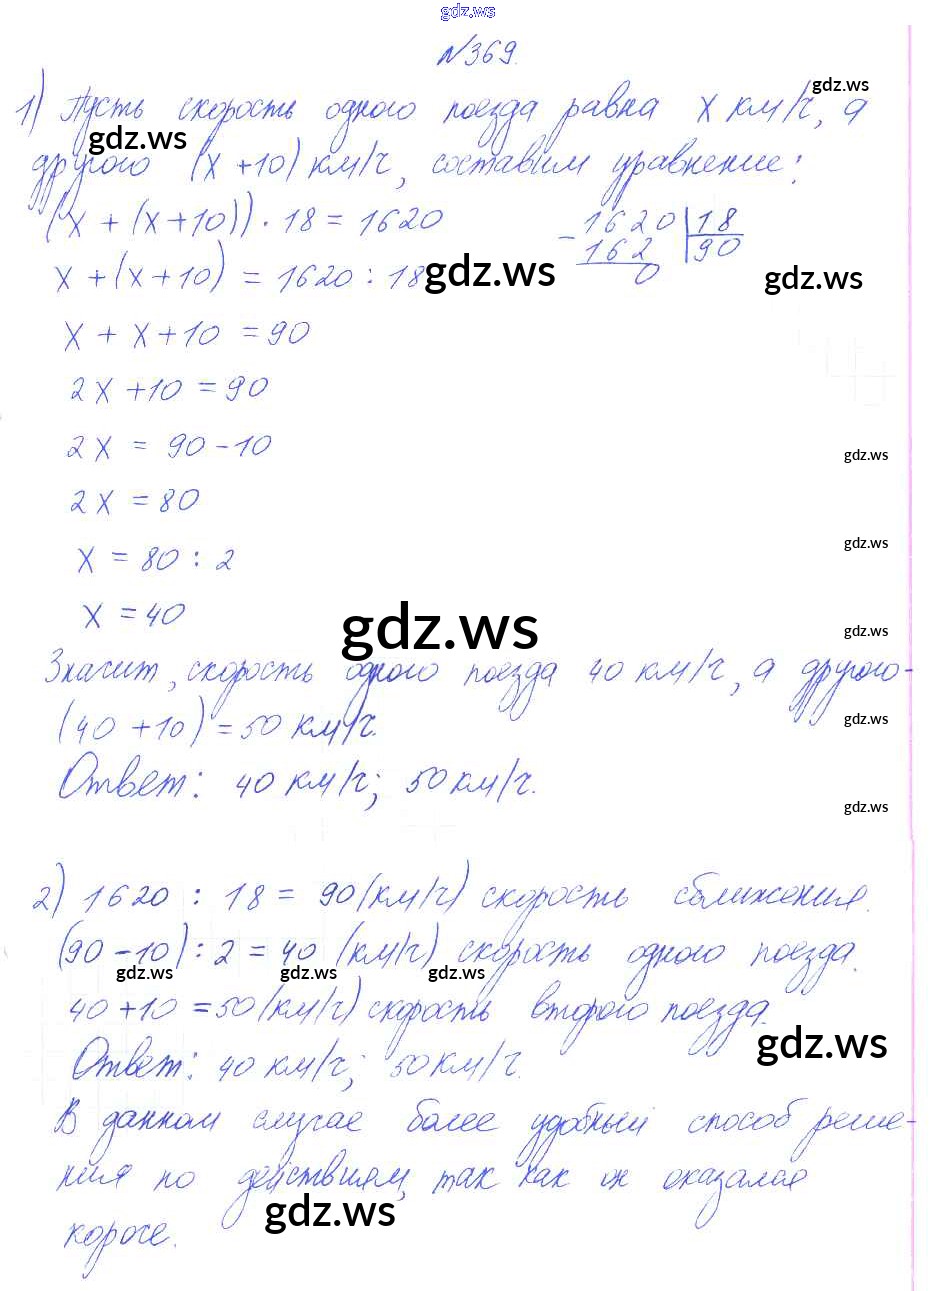 gdz.ws
№369.
gdz.ws
1) Пусть скорость одного поезда равна x км/ч, а
gdz.ws
другого (x+10) км/ч, составим уравнение:
(x + (x+10)) · 18 = 1620
- 1620 | 18
162 90
0
x + (x+10) = 1620 : 18
gdz.ws
gdz.ws
x + x + 10 = 90
2x + 10 = 90
2x = 90 - 10
gdz.ws
2x = 80
gdz.ws
x = 80 : 2
x = 40
gdz.ws
gdz.ws
Значит, скорость одного поезда 40 км/ч, а другого-
(40 + 10) = 50 км/ч.
gdz.ws
Ответ: 40 км/ч; 50 км/ч.
gdz.ws
2) 1620 : 18 = 90 (км/ч) скорость сближения.
(90 - 10) : 2 = 40 (км/ч) скорость одного поезда.
gdz.ws gdz.ws gdz.ws
40 + 10 = 50 (км/ч) скорость второго поезда.
gdz.ws
Ответ: 40 км/ч; 50 км/ч.
В данном случае более удобный способ реше-
ния по действиям, так как он оказался
gdz.ws
короче.